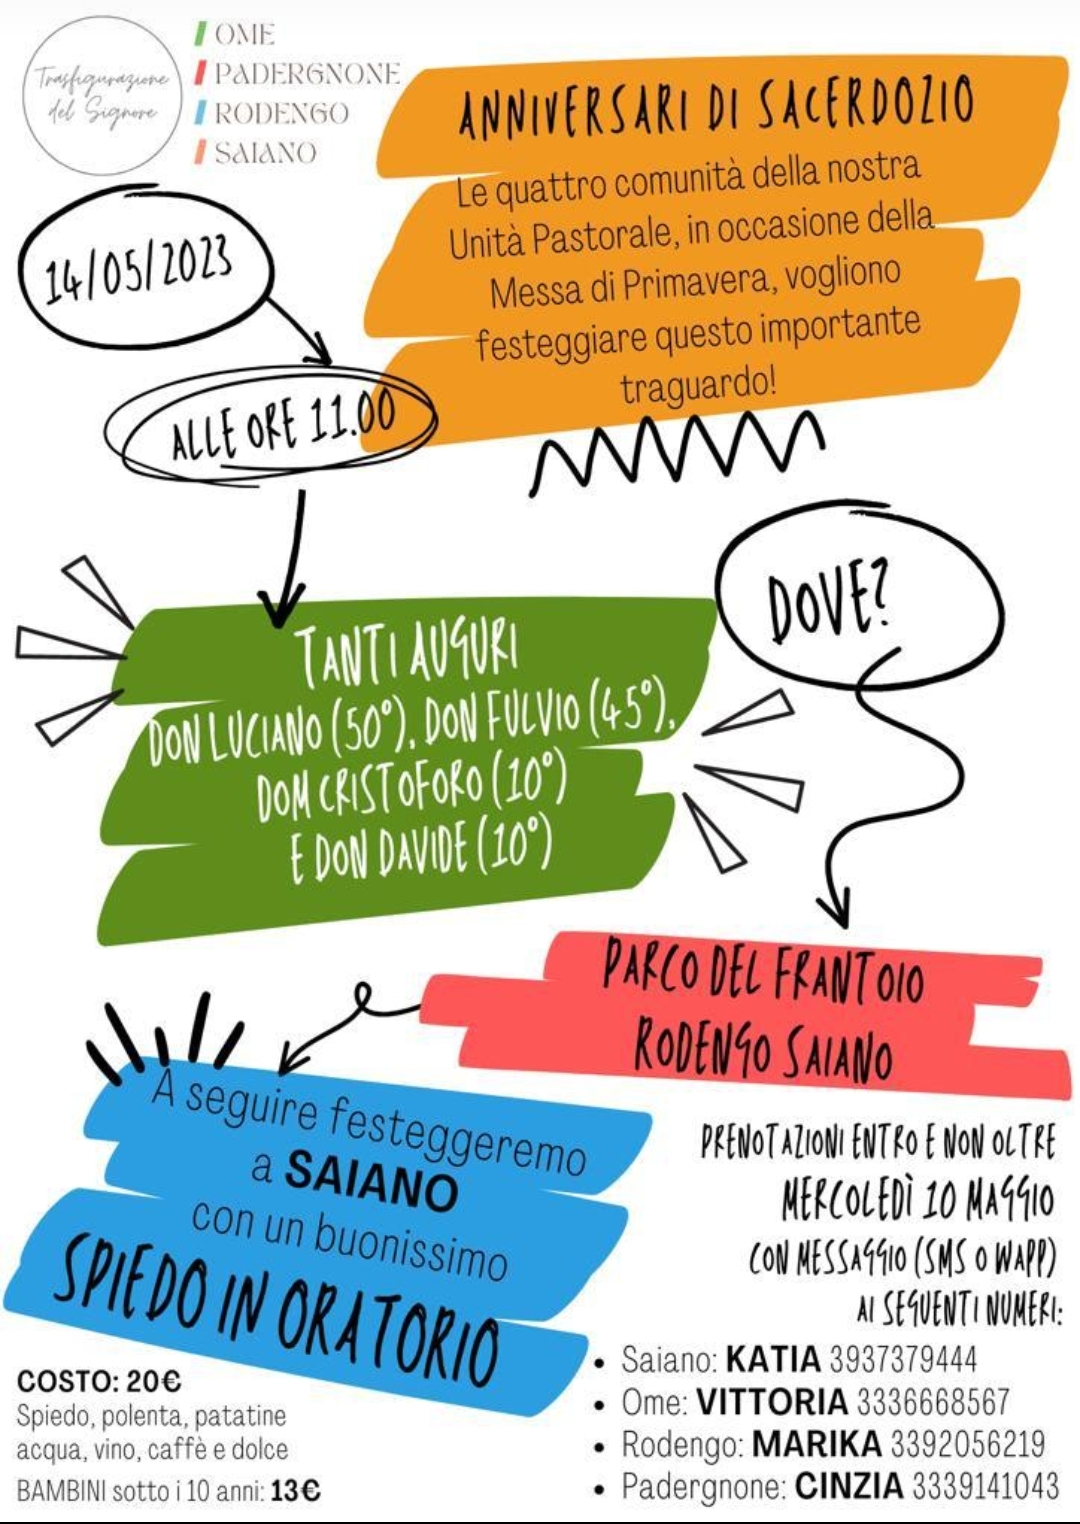 Trasfigurazione
del Signore
OME
PADERGNONE
RODENGO
SAIANO
ANNIVERSARI DI SACERDOZIO
Le quattro comunità della nostra
Unità Pastorale, in occasione della
Messa di Primavera, vogliono
festeggiare questo importante
traguardo!
14/05/2023
ALLE ORE 11.00
TANTI AUGURI
DON LUCIANO (50°), DON FULVIO (45°),
DOM CRISTOFORO (10°)
E DON DAVIDE (10°)
DOVE?
PARCO DEL FRANTOIO
RODENGO SAIANO
A seguire festeggeremo
a SAIANO
con un buonissimo
SPIEDO IN ORATORIO
COSTO: 20€
Spiedo, polenta, patatine
acqua, vino, caffè e dolce
BAMBINI sotto i 10 anni: 13€
PRENOTAZIONI ENTRO E NON OLTRE
MERCOLEDÌ 10 MAGGIO
CON MESSAGGIO (SMS O WAPP)
AI SEGUENTI NUMERI:
• Saiano: KATIA 3937379444
• Ome: VITTORIA 3336668567
• Rodengo: MARIKA 3392056219
• Padergnone: CINZIA 3339141043